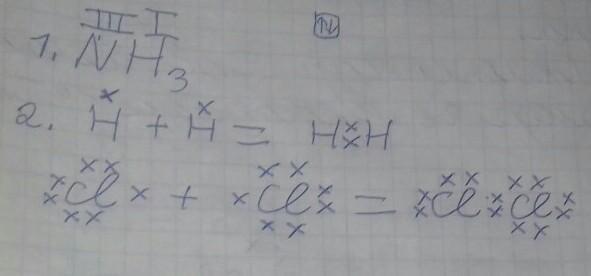 III I
⇅
1. NH₃
2. H + H = H ×× H
Cl + Cl = Cl Cl